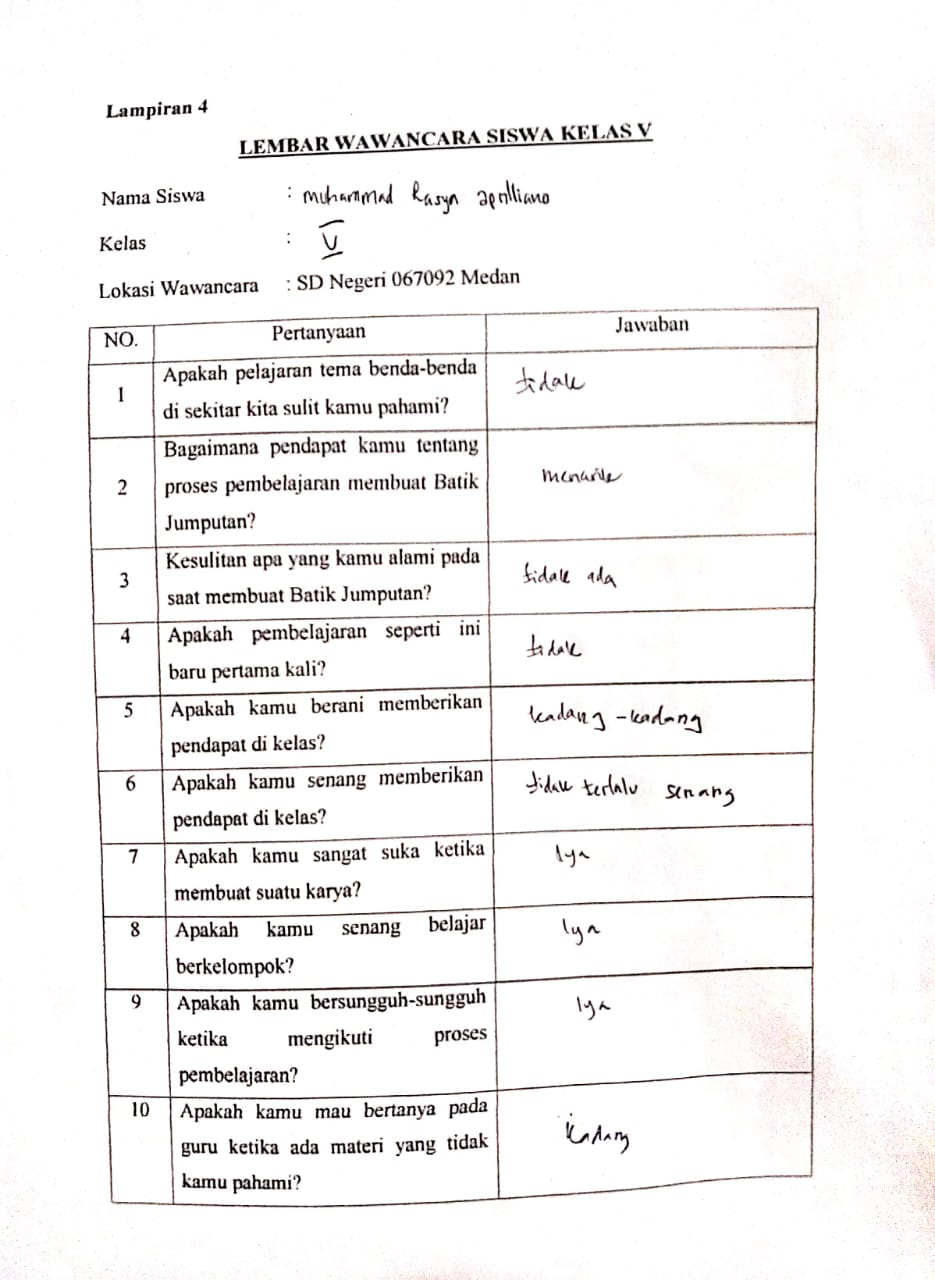 Lampiran 4
LEMBAR WAWANCARA SISWA KELAS V
Nama Siswa : muhammad Rasya aprilliano
Kelas : V
Lokasi Wawancara : SD Negeri 067092 Medan
NO. Pertanyaan Jawaban
1 Apakah pelajaran tema benda-benda
di sekitar kita sulit kamu pahami?
tidak
2 Bagaimana pendapat kamu tentang
proses pembelajaran membuat Batik
Jumputan?
menarik
3 Kesulitan apa yang kamu alami pada
saat membuat Batik Jumputan?
tidak ada
4 Apakah pembelajaran seperti ini
baru pertama kali?
tidak
5 Apakah kamu berani memberikan
pendapat di kelas?
kadang-kadang
6 Apakah kamu senang memberikan
pendapat di kelas?
tidak terlalu senang
7 Apakah kamu sangat suka ketika
membuat suatu karya?
Iya
8 Apakah kamu senang belajar
berkelompok?
Iya
9 Apakah kamu bersungguh-sungguh
ketika mengikuti proses
pembelajaran?
Iya
10 Apakah kamu mau bertanya pada
guru ketika ada materi yang tidak
kamu pahami?
kadang